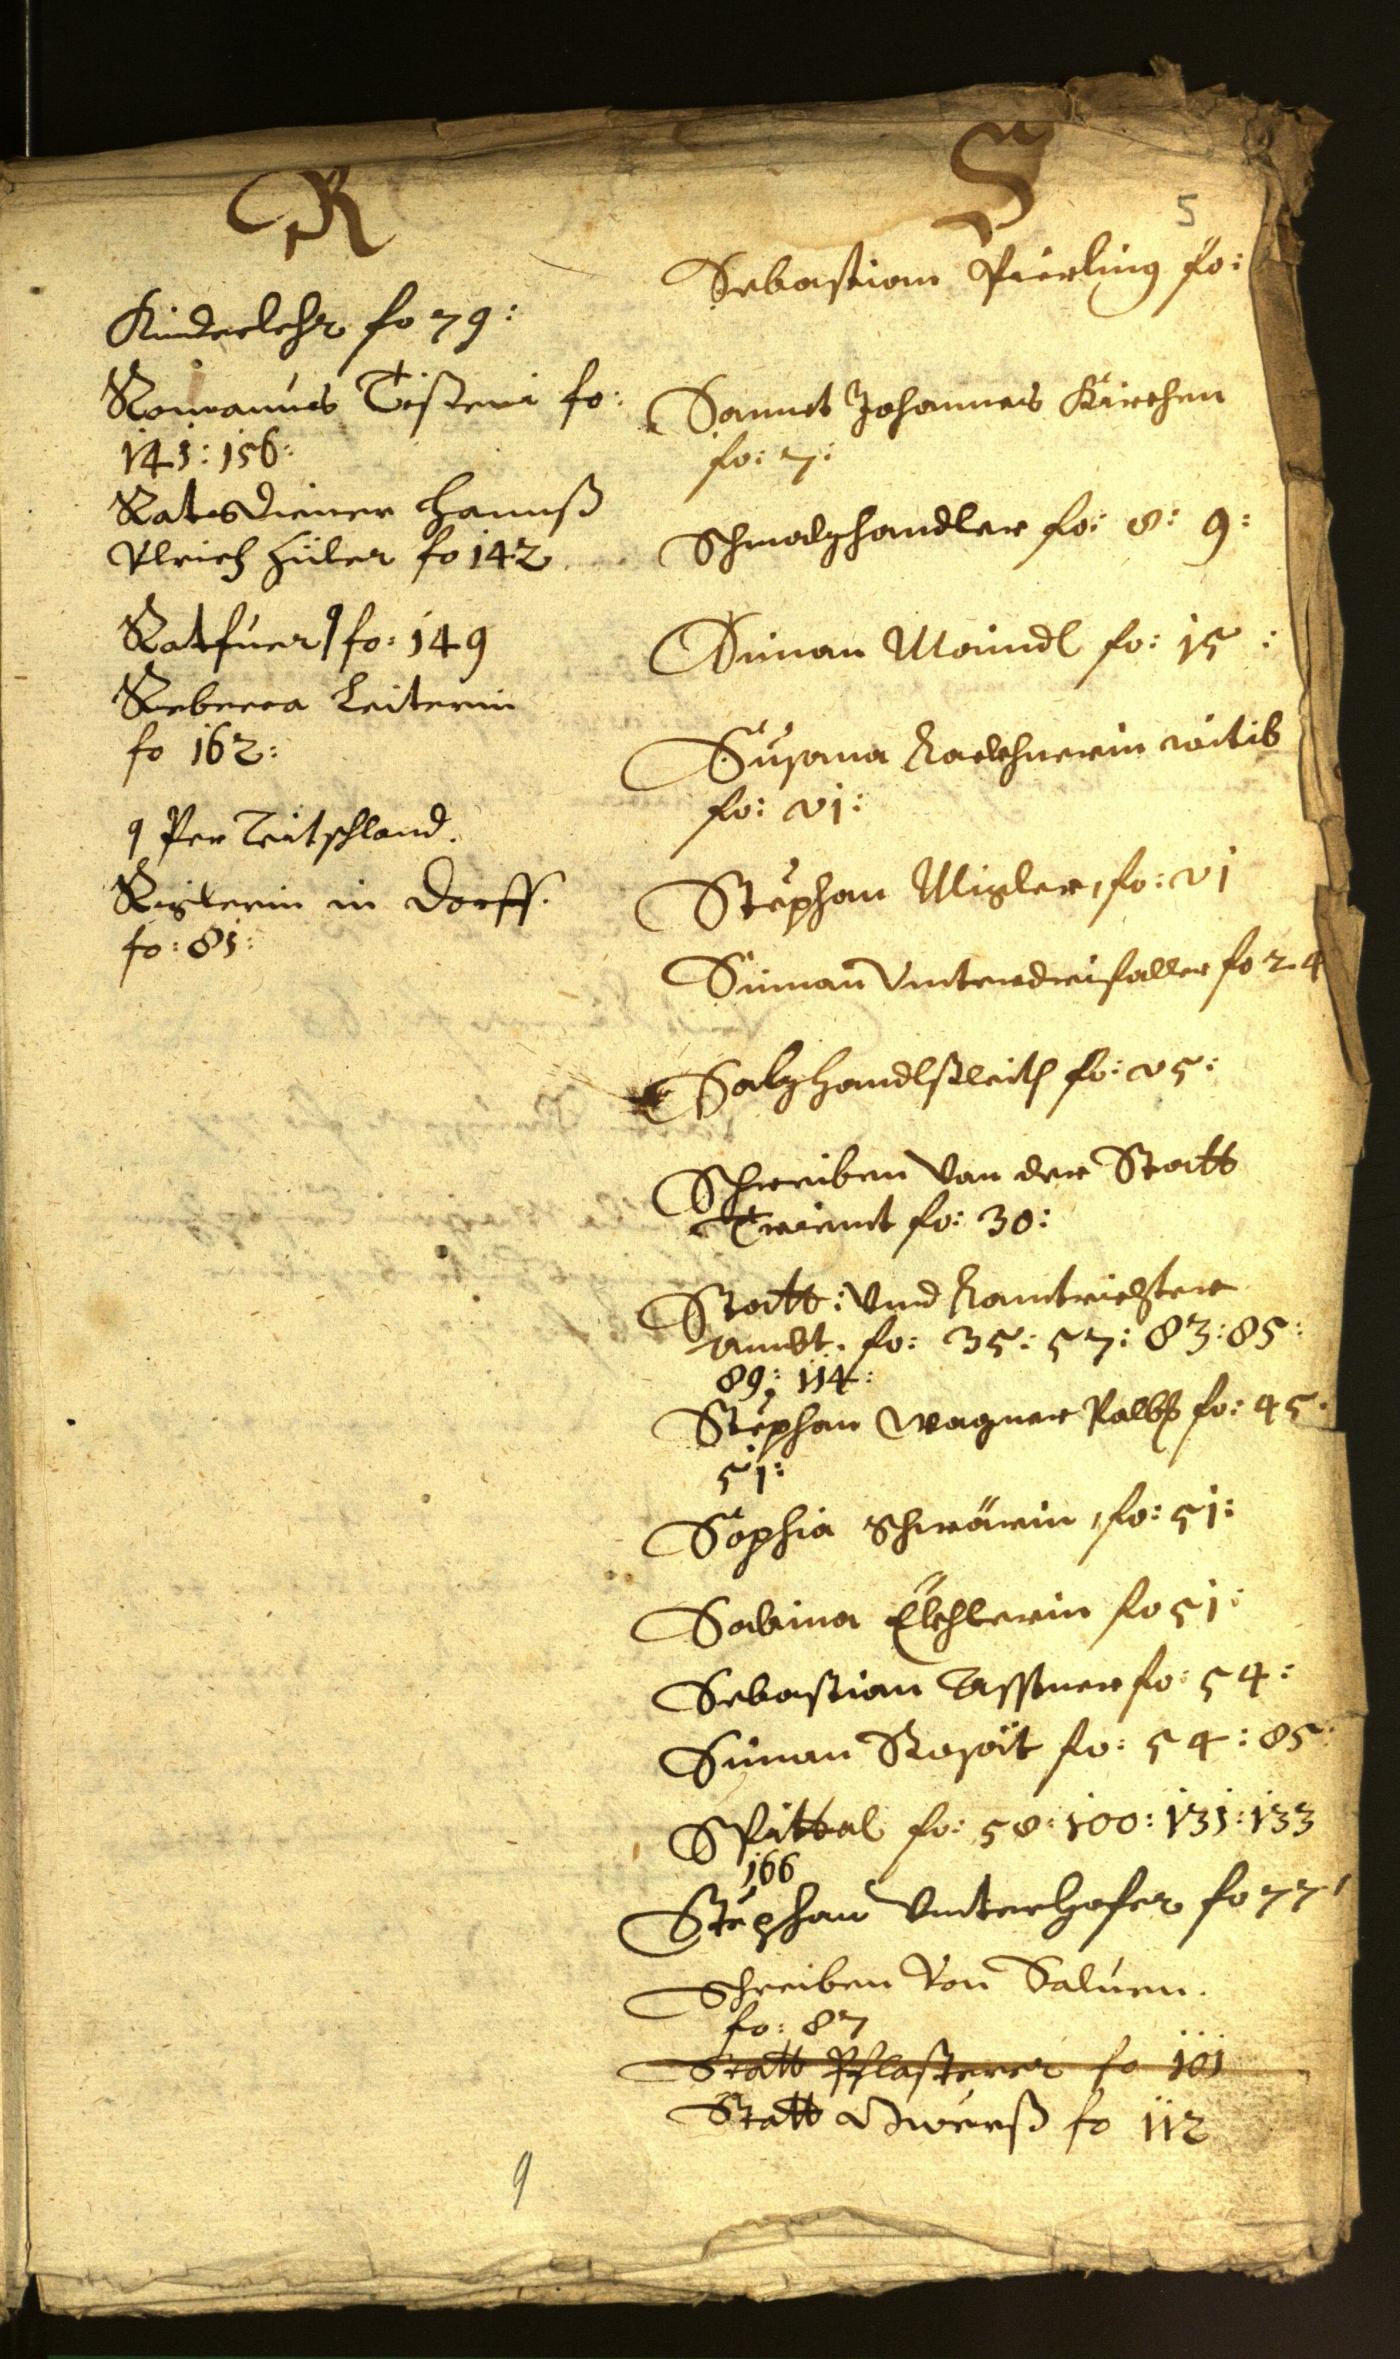 R
Kinderlehr fo 79:
Romanus Tißeni fo:
141: 156:
Ratsdiener Hannß
Vlrich Hüler fo 142
Ratfuer fo: 149
Rebecca Leiterin
fo 162:
Per Teitschland.
Rigler in in Dorff.
fo: 81:
9
S
5
Sebastian Pierling fo:
Sannct Johannes Kirchen
fo: 7:
Schmalzhandler fo: 8: 9:
Siman Maindl fo: 15:
Susana Kaelchnerin witib
fo: 21:
Stephan Migler, fo: 21
Siman Vnterdreifaller fo 24
Salzhandlßleith fo: 25:
Schreiben Von der Statt
Trient fo: 30:
Statt: Vnd Lantrichter
Ambt. fo: 35: 57: 83: 85:
89: 114:
Stephan Wagner Palbß fo: 45
51:
Sophia Schwärin, fo: 51:
Sabina Elchlerin fo 51:
Sebastian Tasstner fo: 54:
Siman Rosait fo: 54: 85:
Spittal fo: 58: 100: 131: 133
166
Stephan Vnterhofer fo 77
Schreiben Von Salurn.
fo: 87
Statt Pflasterer fo 101
Statt fo 112